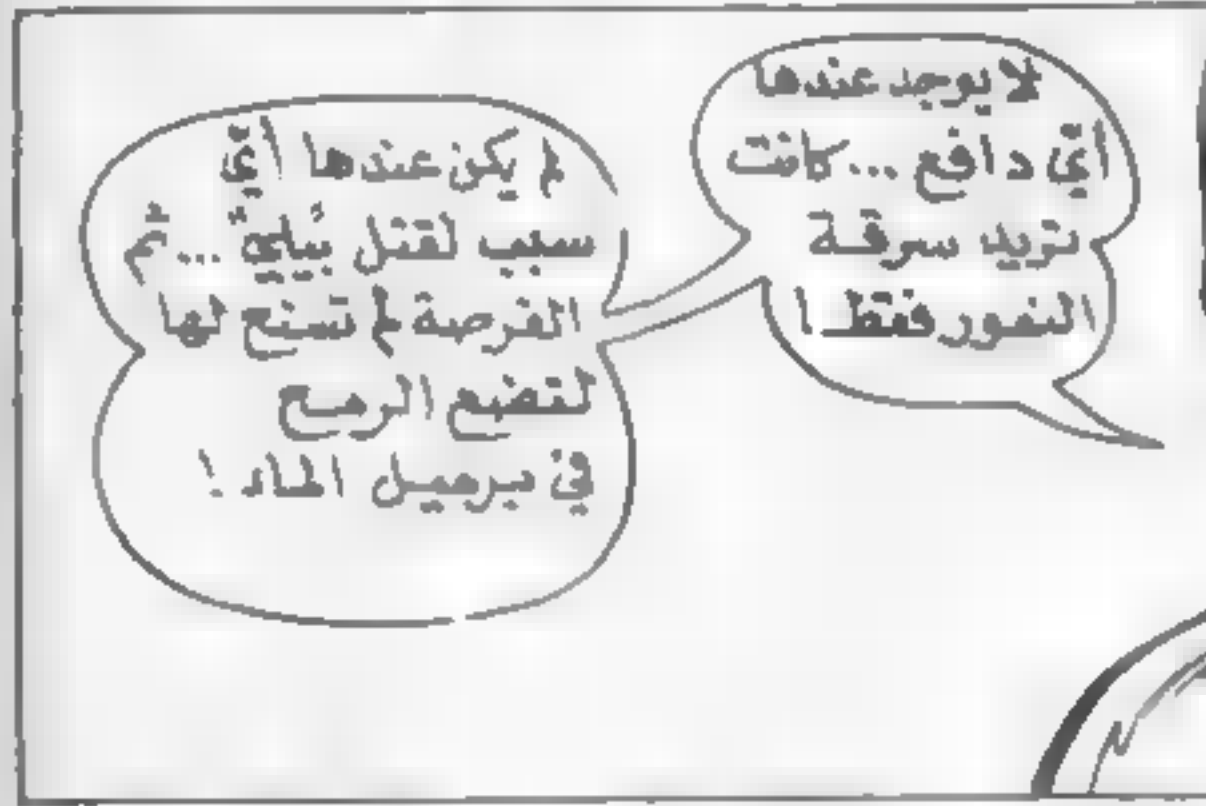 لا يوجد عندها
أيّ دافع ... كانت
تريد سرقة
النمور فقط !
لم يكن عندها أيّ
سبب لقتل بيليّ ... ثم
الفرصة لم تسنح لها
لتضع الرمح
في برميل الماء !